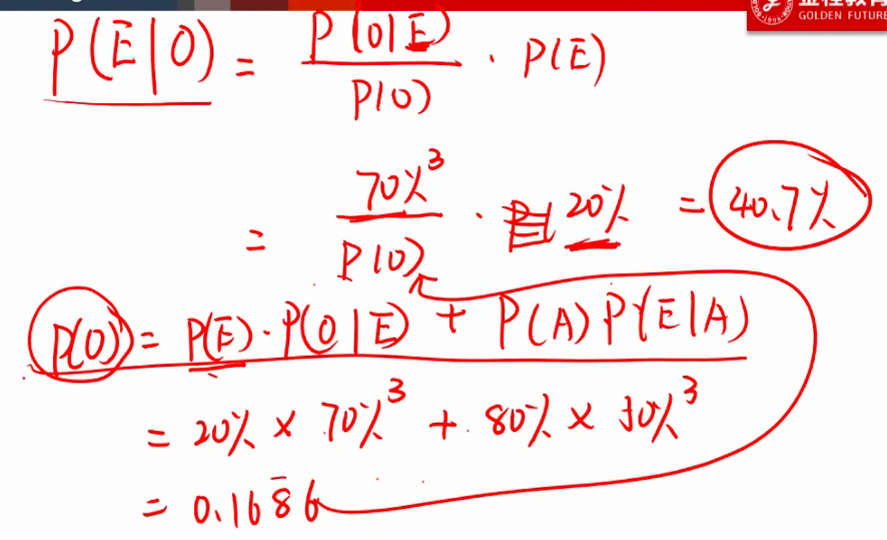 金程教育
GOLDEN FUTURE
P(E|O) = P(O|E) / P(O) · P(E)
= 70%³ / P(O) · 20% = 40.7%
P(O) = P(E)·P(O|E) + P(A)P(E|A)
= 20% × 70%³ + 80% × 50%³
= 0.1686